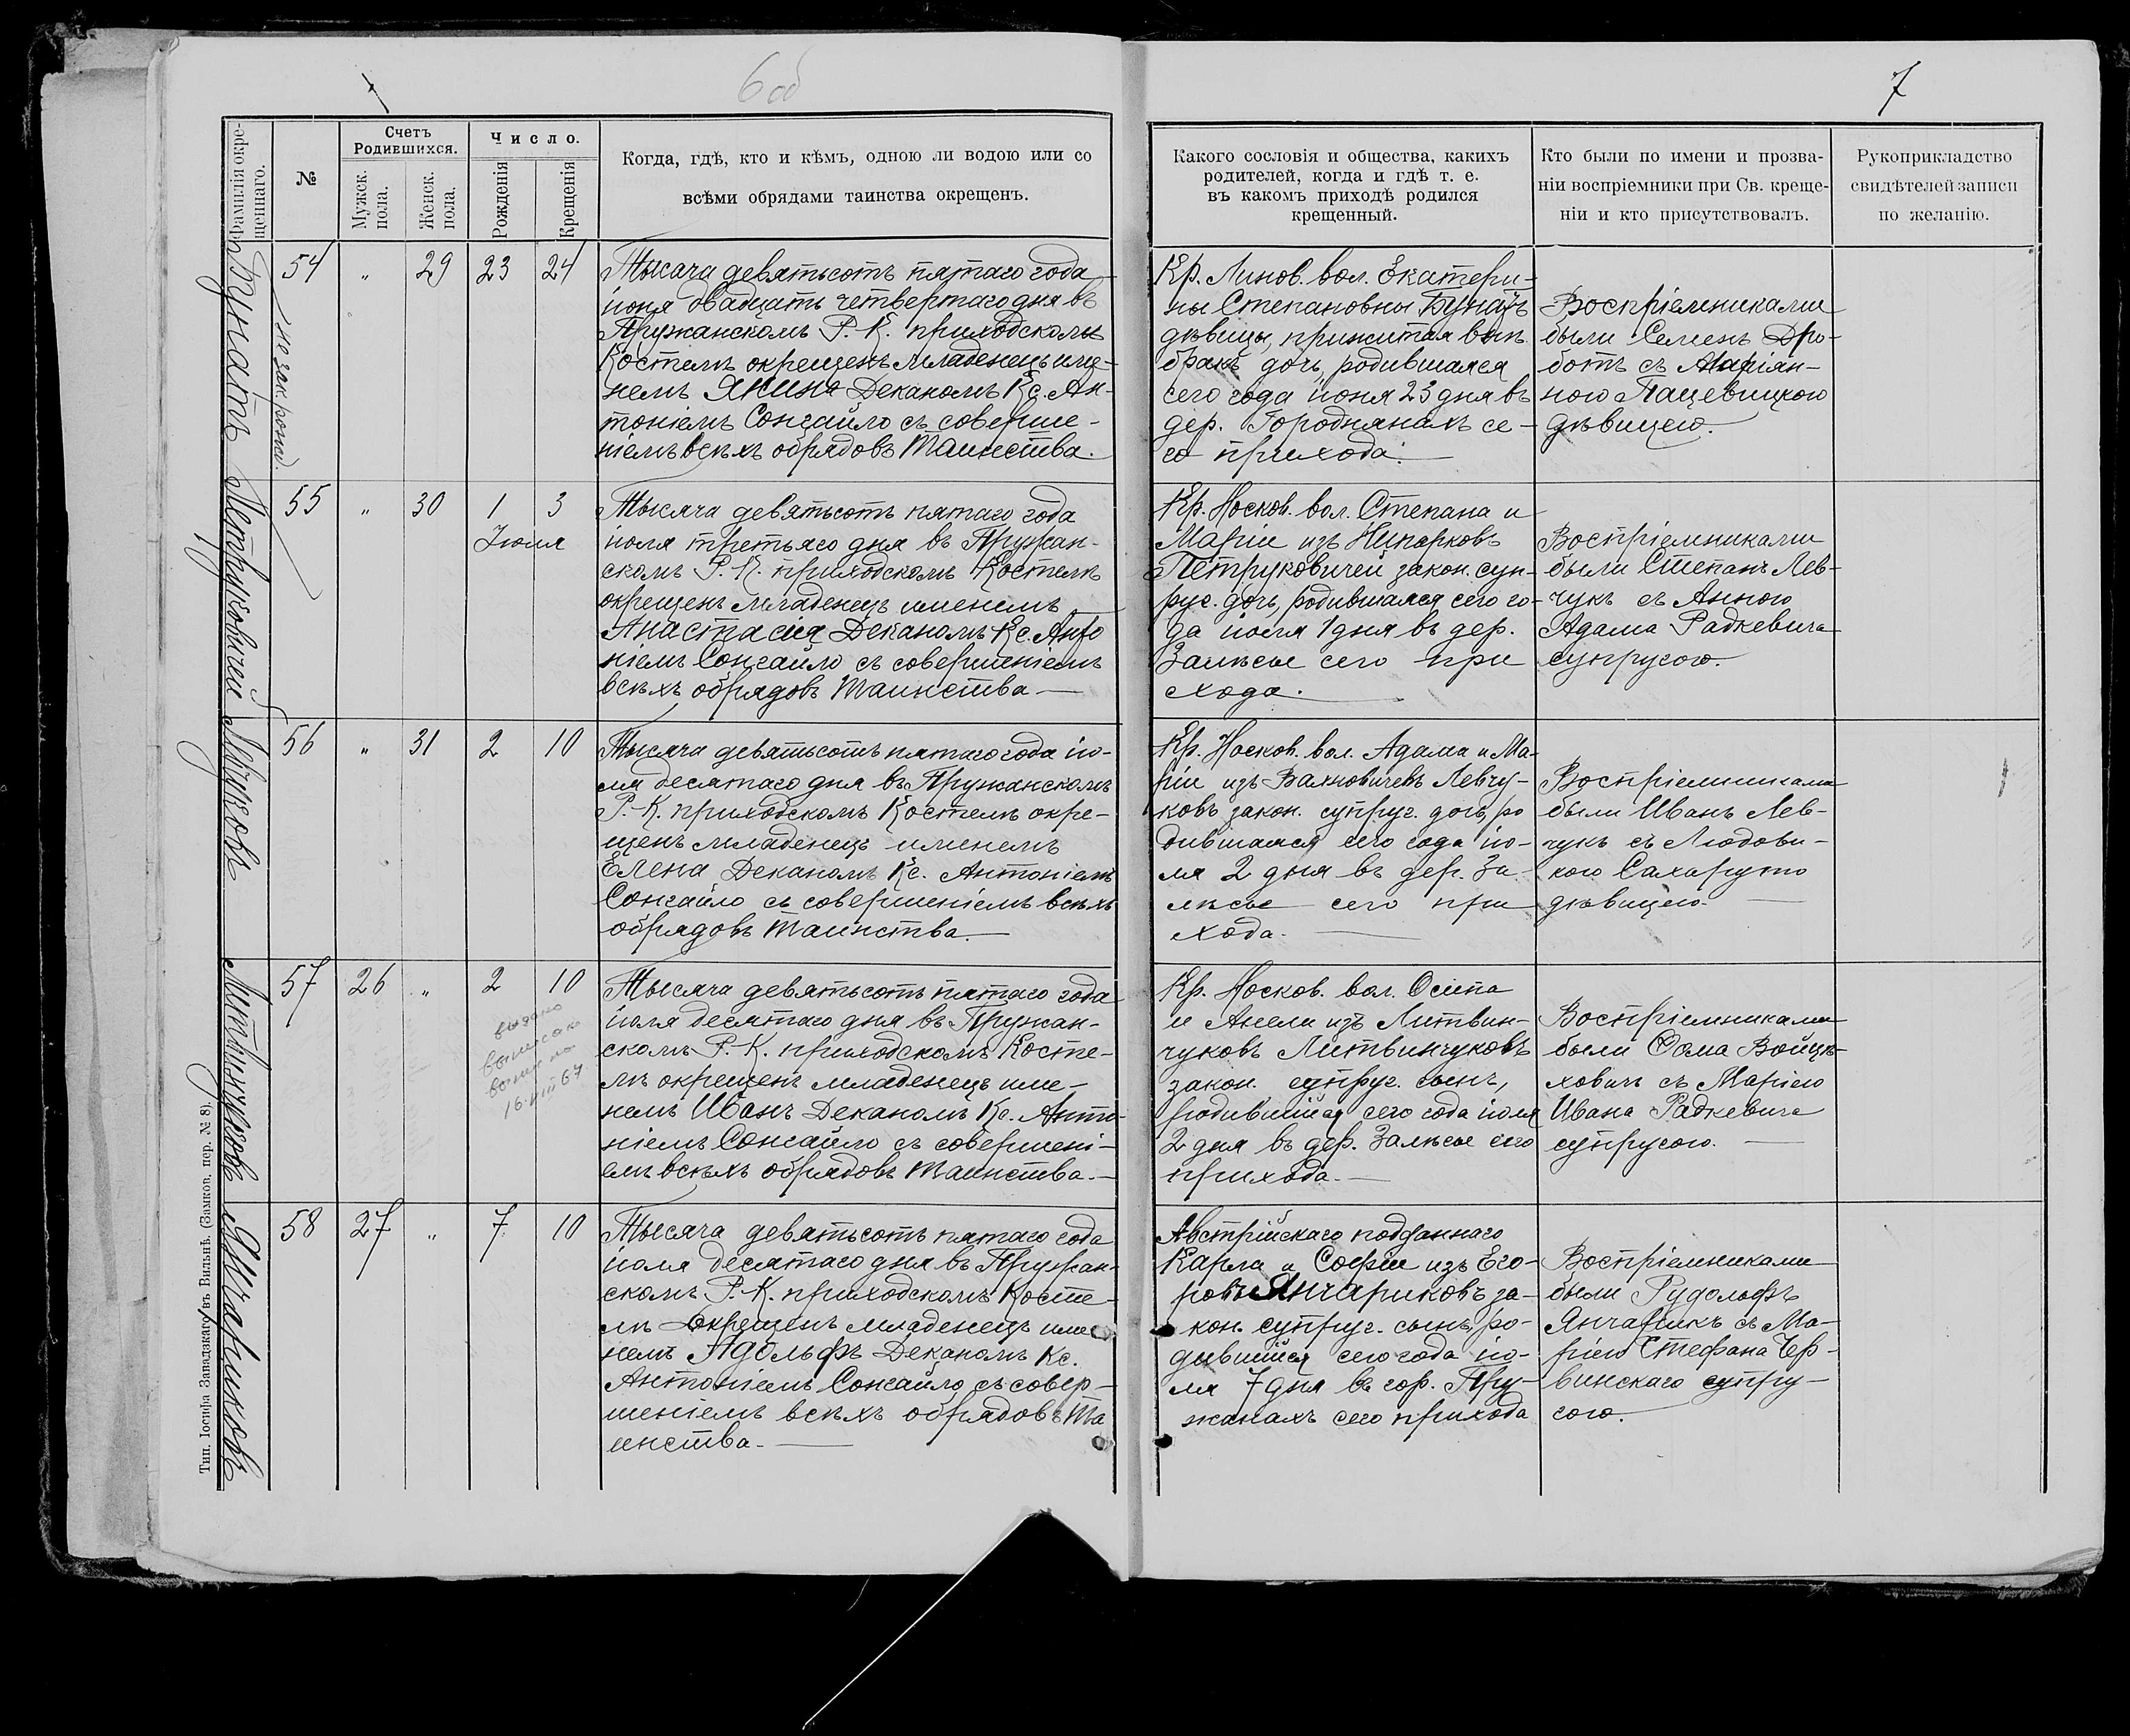 6 об
7
Фамилія окре-
щеннаго.
№
Счетъ
Родившихся.
Мужск.
пола.
Женск.
пола.
Число.
Рожденія
Крещенія
Когда, гдѣ, кто и кѣмъ, одною ли водою или со
всѣми обрядами таинства окрещенъ.
Какого сословія и общества, какихъ
родителей, когда и гдѣ т. е.
въ какомъ приходѣ родился
крещенный.
Кто были по имени и прозва-
ніи воспріемники при Св. креще-
ніи и кто присутствовалъ.
Рукоприкладство
свидѣтелей записи
по желанію.
Бунатъ
незак. рожд.
54 " 29 23 24
Тысяча девятьсотъ пятаго года
іюня двадцать четвертаго дня въ
Пружанскомъ Р. К. приходскомъ
Костелѣ окрещенъ младенецъ име-
немъ Янина Деканомъ Кс. Ан-
тоніемъ Сонгайло съ соверше-
ніемъ всѣхъ обрядовъ Таинства.
Кр. Линов. вол. Екатери-
ны Степановны Бунатъ
дѣвицы, прижитая внѣ
брака дочь, родившаяся
сего года іюня 23 дня въ
дер. Городнянахъ се-
го прихода.
Воспріемниками
были Семенъ Дро-
ботъ съ Маріян-
ною Пацевицкою
дѣвицею.
Петруковичей
55 " 30 1 3
Іюля
Тысяча девятьсотъ пятаго года
іюля третьяго дня въ Пружан-
скомъ Р. К. приходскомъ Костелѣ
окрещенъ младенецъ именемъ
Анастасія Деканомъ Кс. Анто
ніемъ Сонгайло съ совершеніемъ
всѣхъ обрядовъ Таинства
Кр. Носков. вол. Степана и
Маріи изъ
Петруковичей закон. суп-
руг. дочь, родившаяся сего го-
да іюля 1 дня въ дер.
Залѣсье сего при
хода.
Воспріемниками
были Степанъ Лев-
чукъ съ Анною
Адама Радкевича
супругою.
Левчуковъ
56 " 31 2 10
Тысяча девятьсотъ пятаго года ію-
ля десятаго дня въ Пружанскомъ
Р. К. приходскомъ Костелѣ окре-
щенъ младенецъ именемъ
Елена Деканомъ Кс. Антоніемъ
Сонгайло съ совершеніемъ всѣхъ
обрядовъ Таинства.
Кр. Носков. вол. Адама и Ма-
ріи изъ Вахновичевъ Левчу-
ковъ закон. супруг. дочь, ро
дившаяся сего года ію-
ля 2 дня въ дер. За-
лѣсье сего при
хода.
Воспріемниками
были Иванъ Лев-
чукъ съ Людови-
кою Сахаруто
дѣвицею.
Литвинчуковъ
57 26 " 2 10
16.VIII 67
Тысяча девятьсотъ пятаго года
іюля десятаго дня въ Пружан-
скомъ Р. К. приходскомъ Косте-
лѣ окрещенъ младенецъ име-
немъ Иванъ Деканомъ Кс. Анто-
ніемъ Сонгайло съ совершені-
емъ всѣхъ обрядовъ Таинства.
Кр. Носков. вол. Осипа
и Анели изъ Литвин-
чуковъ Литвинчуковъ
закон. супруг. сынъ,
родившійся сего года іюля
2 дня въ дер. Залѣсье сего
прихода.
Воспріемниками
были Ѳома Войцѣ-
ховичъ съ Маріею
Ивана Радкевича
супругою.
Янчариковъ
58 27 " 7 10
Тысяча девятьсотъ пятаго года
іюля десятаго дня въ Пружан-
скомъ Р. К. приходскомъ Косте-
лѣ окрещенъ младенецъ име
немъ Адольфъ Деканомъ Кс.
Антоніемъ Сонгайло съ совер-
шеніемъ всѣхъ обрядовъ Та
инства.
Австрійскаго подданнаго
Карла и Софіи изъ Его-
ровъ Янчариковъ за-
кон. супруг. сынъ, ро-
дившійся сего года ію-
ля 7 дня въ гор. Пру-
жанахъ сего прихода
Воспріемниками
были Рудольфъ
Янчарикъ съ Ма-
ріею Стефана Чер-
винскаго супру-
гою.
Тип. Іосифа Завадзкаго въ Вильнѣ. (Замков. пер. № 8).